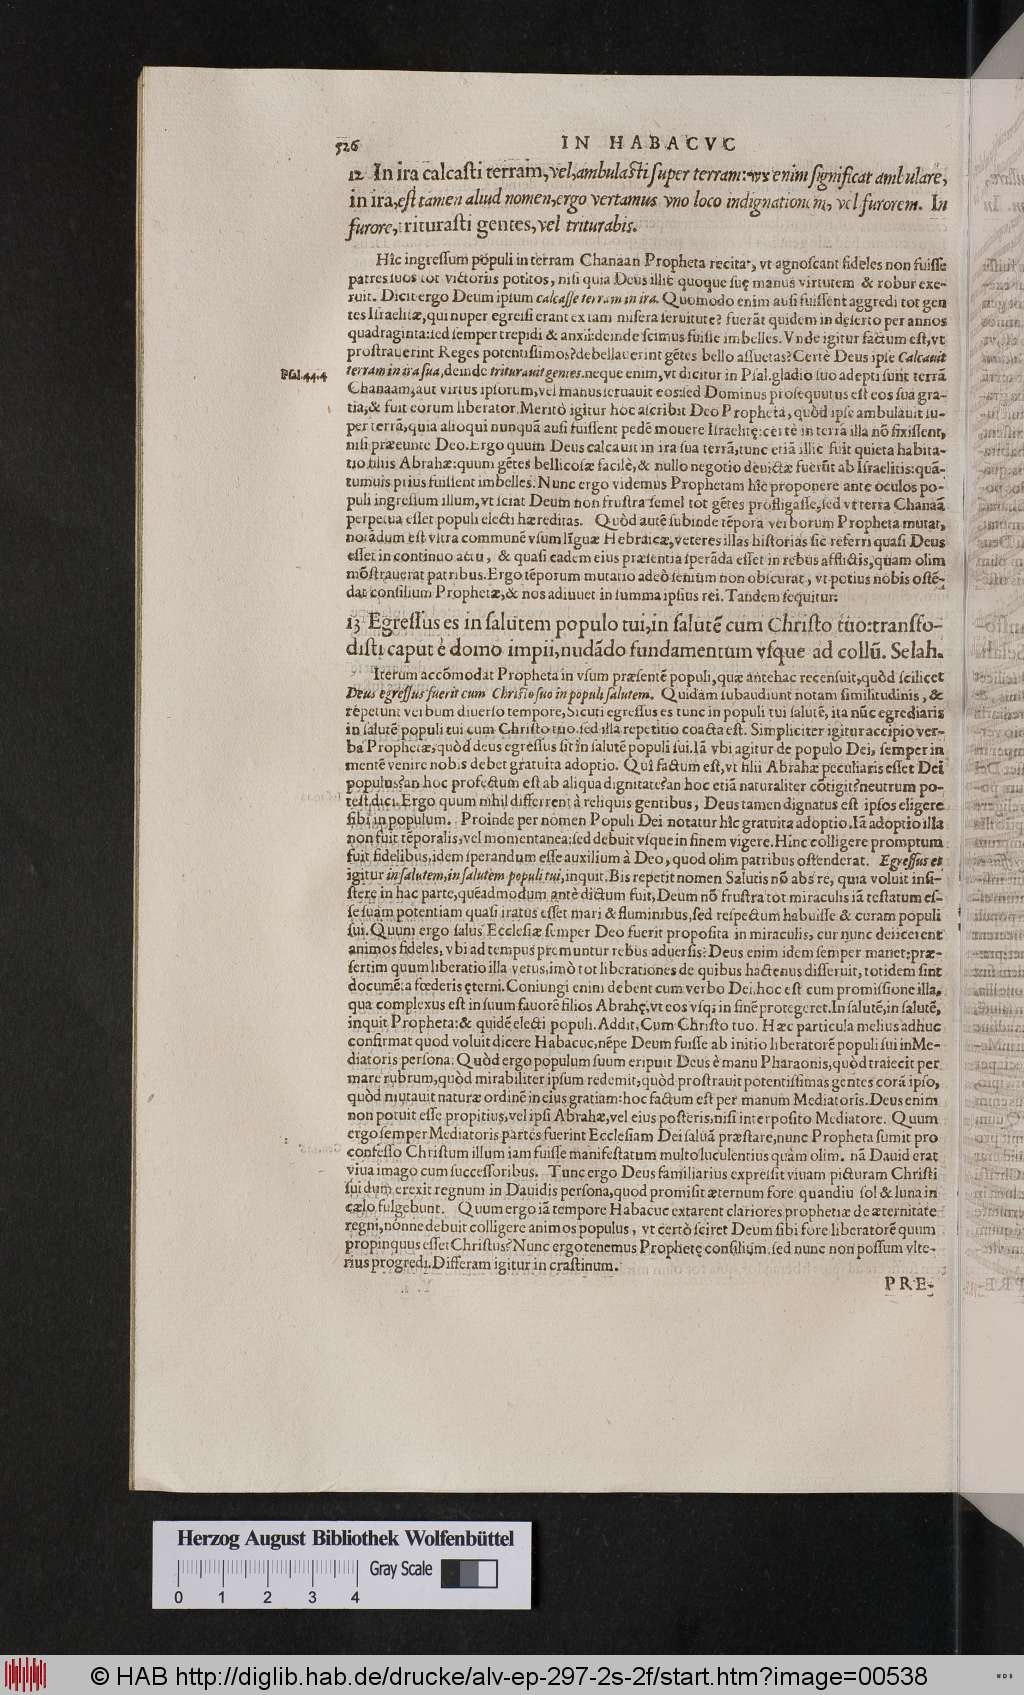 526 IN HABACVC
12 In ira calcaſti terram, vel, ambulaſti ſuper terram: enim ſignificat ambulare,
in ira, eſt tamen aliud nomen, ergo vertamus vno loco indignationem, vel furorem. In
furore, trituraſti gentes, vel triturabis.
Hîc ingreſſum populi in terram Chanaan Propheta recitat, vt agnoſcant fideles non fuiſſe
patres ſuos tot victoriis potitos, niſi quia Deus illîc quoque ſuę manus virtutem & robur exe-
ruit. Dicit ergo Deum ipſum calcaſſe terram in ira. Quomodo enim auſi fuiſſent aggredi tot gen
tes Iſraelitæ, qui nuper egreſſi erant ex tam miſera ſeruitute? fuerãt quidem in deſerto per annos
quadraginta: ſed ſemper trepidi & anxii: deinde ſcimus fuiſſe imbelles. Vnde igitur factum eſt, vt
proſtrauerint Reges potentiſſimos? debellauerint gẽtes bello aſſuetas? Certè Deus ipſe Calcauit
terram in ira ſua, deinde triturauit gentes. neque enim, vt dicitur in Pſal. gladio ſuo adepti ſunt terrã
Pſal. 44.4
Chanaam, aut virtus ipſorum, vel manus ſeruauit eos: ſed Dominus proſequutus eſt eos ſua gra-
tia, & fuit eorum liberator. Meritò igitur hoc aſcribit Deo Propheta, quòd ipſe ambulauit ſu-
per terrã, quia alioqui nunquã auſi fuiſſent pedẽ mouere Iſraelitę: certè in terra illa nõ fixiſſent,
niſi præeunte Deo. Ergo quum Deus calcauit in ira ſua terrã, tunc etiã illîc fuit quieta habita-
tio filiis Abrahæ: quum gẽtes bellicoſæ facilè, & nullo negotio deuictæ fuerũt ab Iſraelitis: quã-
tumuis prius fuiſſent imbelles. Nunc ergo videmus Prophetam hîc proponere ante oculos po-
puli ingreſſum illum, vt ſciat Deum non fruſtra ſemel tot gẽtes profligaſſe, ſed vt terra Chanaã
perpetua eſſet populi electi hæreditas. Quòd autẽ ſubinde tẽpora verborum Propheta mutat,
notãdum eſt vltra communẽ vſum lĩguæ Hebraicæ, veteres illas hiſtorias ſic referri quaſi Deus
eſſet in continuo actu, & quaſi eadem eius præſentia ſperãda eſſet in rebus afflictis, quam olim
mõſtrauerat patribus. Ergo tẽporum mutatio adeò ſenſum non obſcurat, vt potius nobis oſtẽ-
dat conſilium Prophetæ, & nos adiuuet in ſumma ipſius rei. Tandem ſequitur:
13 Egreſſus es in ſalutem populo tui, in ſalutẽ cum Chriſto tuo: transfo-
diſti caput è domo impii, nudãdo fundamentum vſque ad collũ. Selah.
Iterum accõmodat Propheta in vſum præſentẽ populi, quæ antehac recenſuit, quòd ſcilicet
Deus egreſſus fuerit cum Chriſto ſuo in populi ſalutem. Quidam ſubaudiunt notam ſimilitudinis, &
repetunt verbum diuerſo tempore, Sicuti egreſſus es tunc in populi tui ſalutẽ, ita nũc egrediaris
in ſalutẽ populi tui cum Chriſto tuo. ſed illa repetitio coacta eſt. Simpliciter igitur accipio ver-
ba Prophetæ, quòd deus egreſſus ſit in ſalutẽ populi ſui. Iã vbi agitur de populo Dei, ſemper in
mentẽ venire nobis debet gratuita adoptio. Quî factum eſt, vt filii Abrahæ peculiaris eſſet Dei
populus? an hoc profectum eſt ab aliqua dignitate? an hoc etiã naturaliter cõtigit? neutrum po-
teſt dici. Ergo quum nihil differrent à reliquis gentibus, Deus tamen dignatus eſt ipſos eligere
ſibi in populum. Proinde per nomen Populi Dei notatur hîc gratuita adoptio. Iã adoptio illa
non fuit tẽporalis, vel momentanea: ſed debuit vſque in finem vigere. Hinc colligere promptum
fuit fidelibus, idem ſperandum eſſe auxilium à Deo, quod olim patribus oſtenderat. Egreſſus es
igitur in ſalutem, in ſalutem populi tui, inquit. Bis repetit nomen Salutis nõ abs re, quia voluit inſi-
ſtere in hac parte, quẽadmodum antè dictum fuit, Deum nõ fruſtra tot miraculis iã teſtatum eſ-
ſe ſuam potentiam quaſi iratus eſſet mari & fluminibus, ſed reſpectum habuiſſe & curam populi
ſui. Quum ergo ſalus Eccleſiæ ſemper Deo fuerit propoſita in miraculis, cur nunc deiicerent
animos fideles, vbi ad tempus premuntur rebus aduerſis? Deus enim idem ſemper manet: præ-
ſertim quum liberatio illa vetus, imò tot liberationes de quibus hactenus diſſeruit, totidem ſint
documẽta fœderis ęterni. Coniungi enim debent cum verbo Dei, hoc eſt cum promiſſione illa,
qua complexus eſt in ſuum fauorẽ filios Abrahę, vt eos vſq; in finẽ protegeret. In ſalutẽ, in ſalutẽ,
inquit Propheta: & quidẽ electi populi. Addit, Cum Chriſto tuo. Hæc particula melius adhuc
confirmat quod voluit dicere Habacuc, nẽpe Deum fuiſſe ab initio liberatorẽ populi ſui in Me-
diatoris perſona: Quòd ergo populum ſuum eripuit Deus è manu Pharaonis, quòd traiecit per
mare rubrum, quòd mirabiliter ipſum redemit, quòd proſtrauit potentiſſimas gentes corã ipſo,
quòd mutauit naturæ ordinẽ in eius gratiam: hoc factum eſt per manum Mediatoris. Deus enim
non potuit eſſe propitius, vel ipſi Abrahæ, vel eius poſteris, niſi interpoſito Mediatore. Quum
ergo ſemper Mediatoris partes fuerint Eccleſiam Dei ſaluã præſtare, nunc Propheta ſumit pro
confeſſo Chriſtum illum iam fuiſſe manifeſtatum multo luculentius quàm olim. nã Dauid erat
viua imago cum ſucceſſoribus. Tunc ergo Deus familiarius expreſſit viuam picturam Chriſti
ſui dum erexit regnum in Dauidis perſona, quod promiſit æternum fore quandiu ſol & luna in
cælo fulgebunt. Quum ergo iã tempore Habacuc extarent clariores prophetiæ de æternitate
regni, nonne debuit colligere animos populus, vt certò ſciret Deum ſibi fore liberatorẽ quum
propinquus eſſet Chriſtus? Nunc ergo tenemus Prophetę conſilium. ſed nunc non poſſum vlte-
rius progredi. Differam igitur in craſtinum.
PRE-
Herzog August Bibliothek Wolfenbüttel
Gray Scale
0 1 2 3 4
© HAB http://diglib.hab.de/drucke/alv-ep-297-2s-2f/start.htm?image=00538